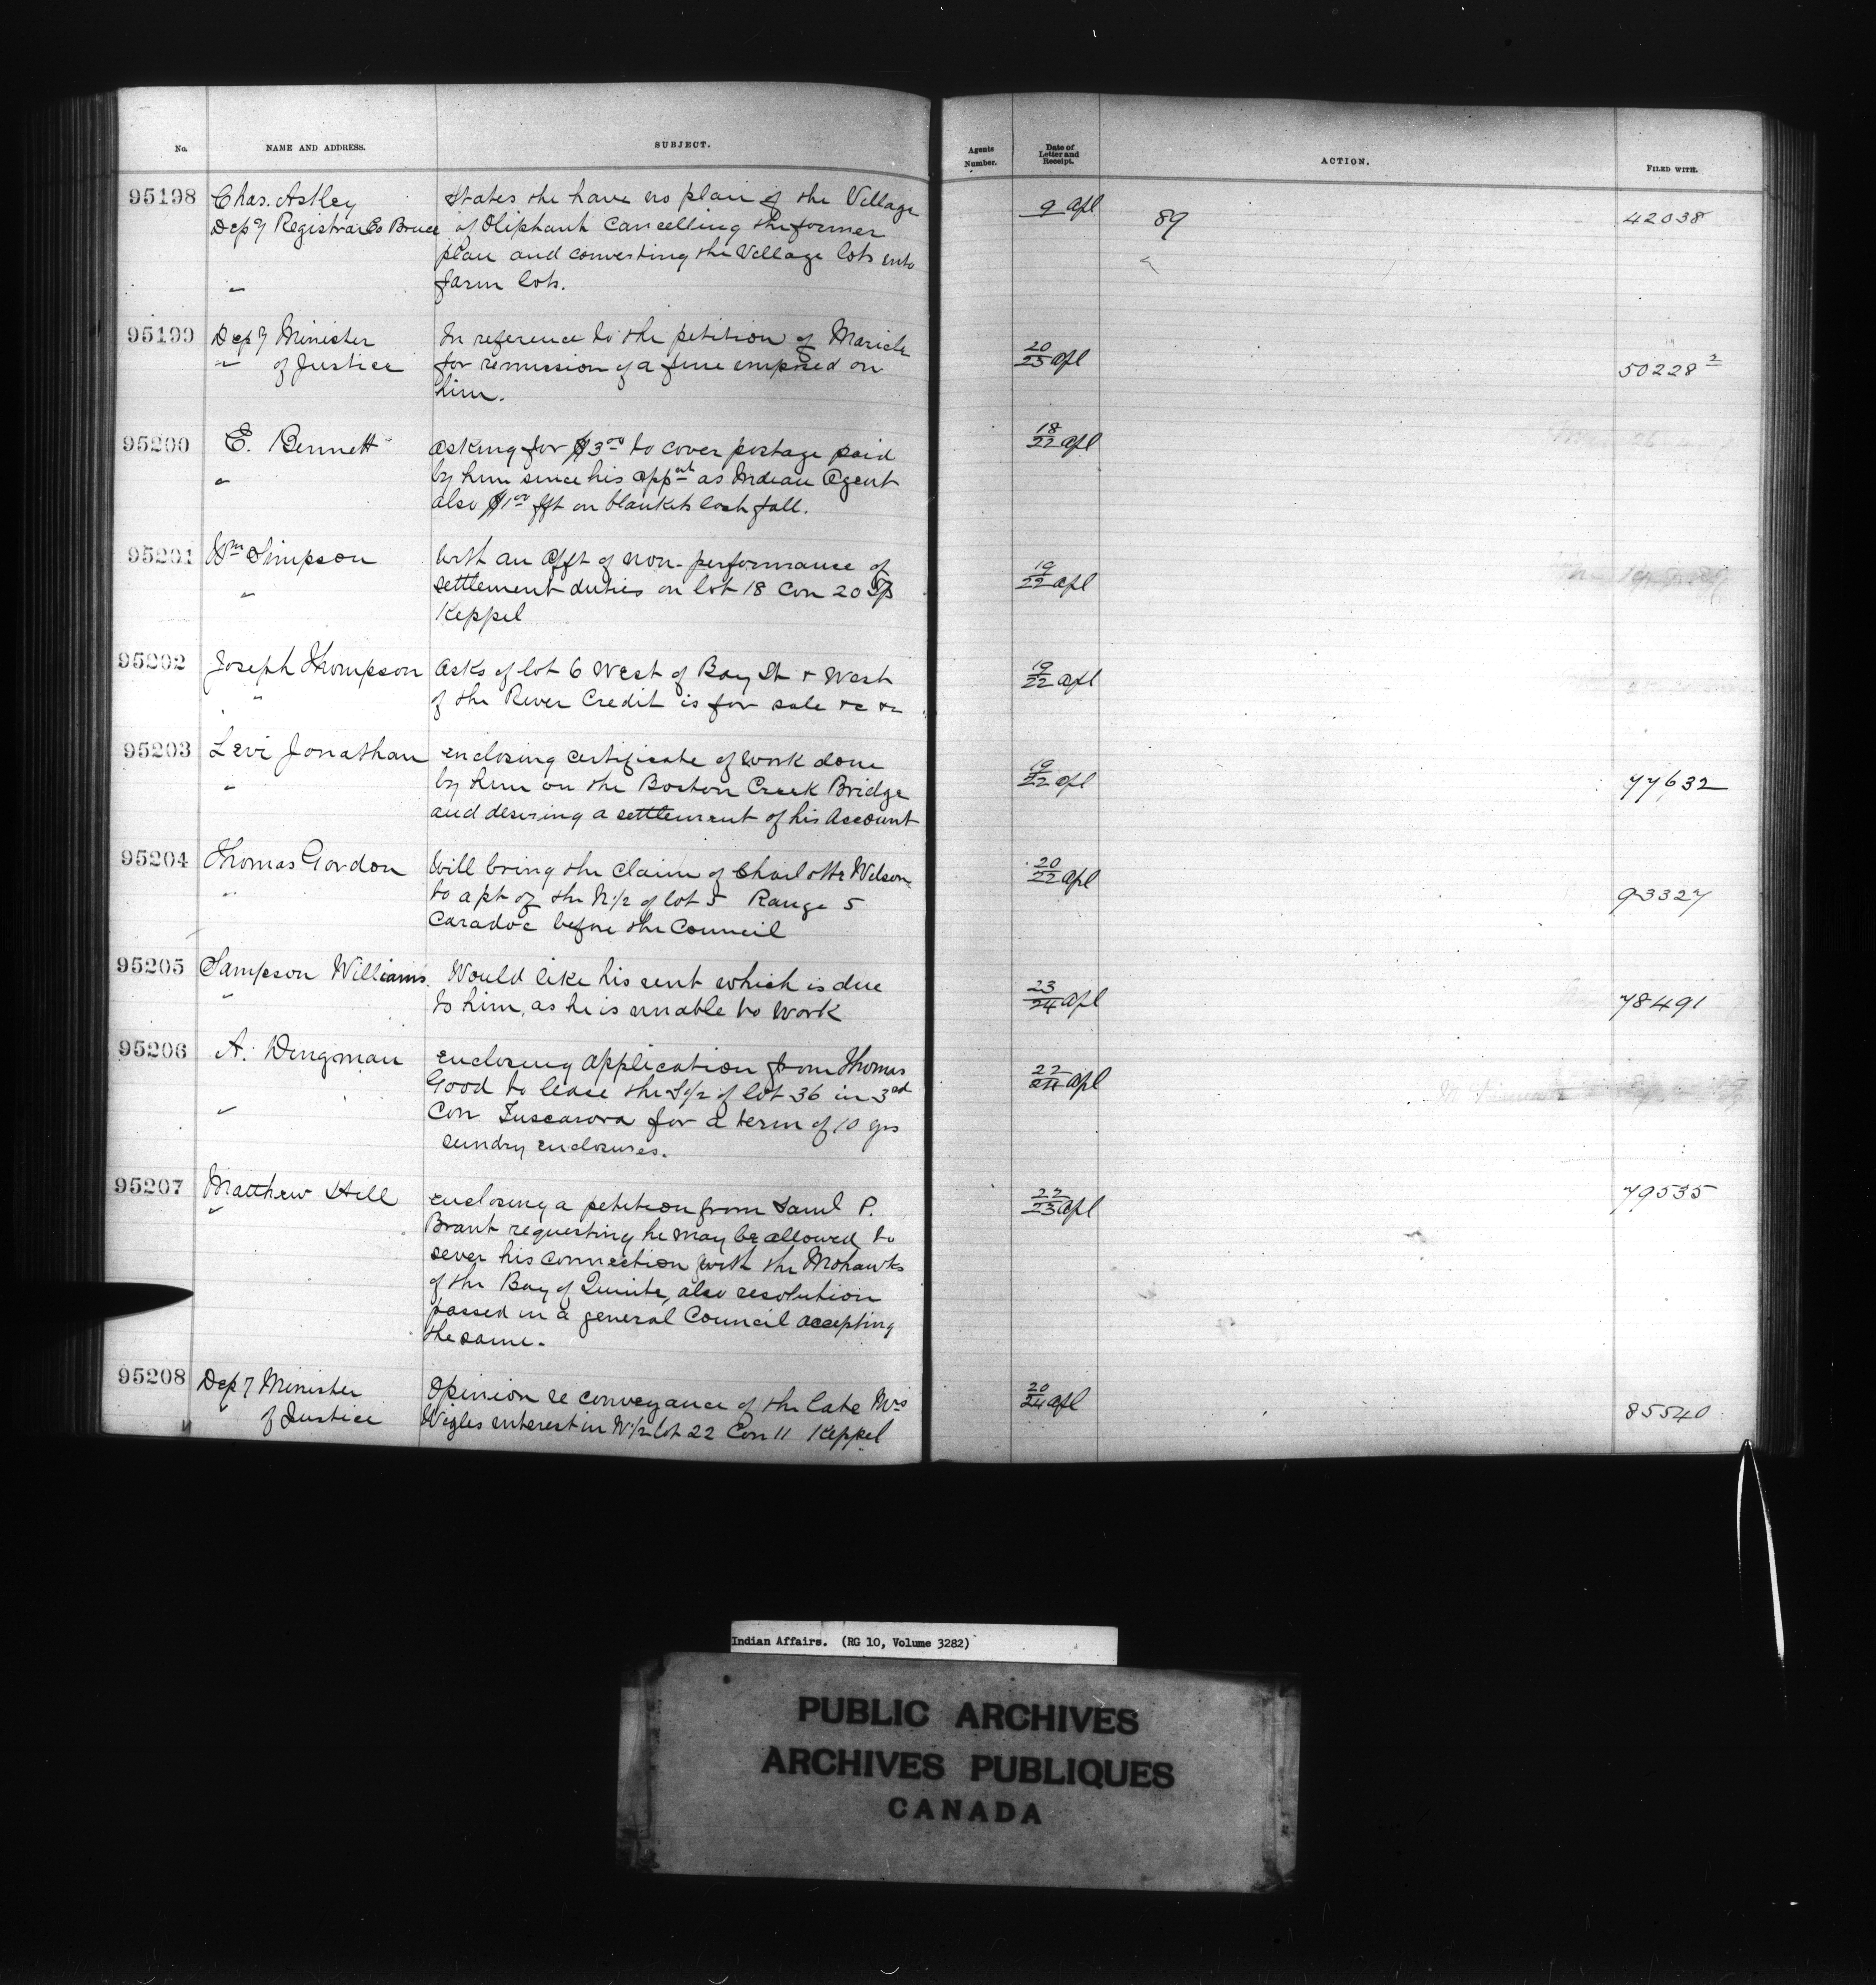 No. NAME AND ADDRESS. SUBJECT. Agents Number. Date of Letter and Receipt. ACTION. FILED WITH.
95198 Chas. Astley States the have no plan of the Village 9 Apl 89 42038
Depy Registrar Co Bruce of Oliphant Cancelling the former
plan and converting the Village lots into
" farm lots.
95199 Depy Minister In reference to the petition of Maricle 20/23 Apl 50228²
" of Justice for remission of a fine imposed on
him.
95200 E. Bennett Asking for $3 00 to cover postage paid 18/22 Apl
" by him since his appnt as Indian Agent
also $1 00 fft on blankets last fall.
95201 Wm Simpson With an Afft of non-performance of 19/22 Apl
" settlement duties on lot 18 Con 20 Tp
Keppel
95202 Joseph Thompson Asks if lot 6 West of Bay St & West 19/22 Apl
" of the River Credit is for sale &c &c
95203 Levi Jonathan enclosing certificate of work done 19/22 Apl 77632
" by him on the Boston Creek Bridge
and desiring a settlement of his Account
95204 Thomas Gordon Will bring the Claim of Charlotte Wilson 20/22 Apl 93327
" to a pt of the N 1/2 of lot 5 Range 5
Caradoc before the Council
95205 Sampson Williams. Would like his rent which is due 23/24 Apl 78491
" to him, as he is unable to work
95206 A. Dingman enclosing application from Thomas 22/ Apl
Good to lease the S 1/2 of lot 36 in 3rd
" Con Tuscarora for a term of 10 yrs
sundry enclosures.
95207 Matthew Hill enclosing a petition from Saml P. 22/23 Apl 79535
" Brant requesting he may be allowed to
sever his connection with the Mohawks
of the Bay of Quinte, also resolution
passed in a general Council accepting
the same.
95208 Depy Minister Opinion re conveyance of the late Mrs 20/24 Apl 85540
" of Justice Wigles interest in N 1/2 lot 22 Con 11 Keppel
Indian Affairs. (RG 10, Volume 3282)
PUBLIC ARCHIVES
ARCHIVES PUBLIQUES
CANADA